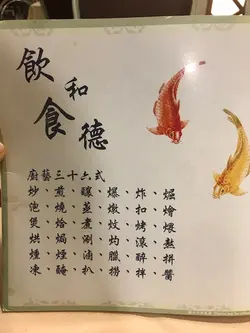 飲和食德
廚藝三十六式
炒、煎、釀、爆、炸、
泡、燒、蒸、燉、扣、燴
煲、烚、煮、炆、烤、煨
烘、焗、涮、灼、滾、熬
燻、煙、滷、臘、醉、拼
凍、醃、扒、撈、拌、醬